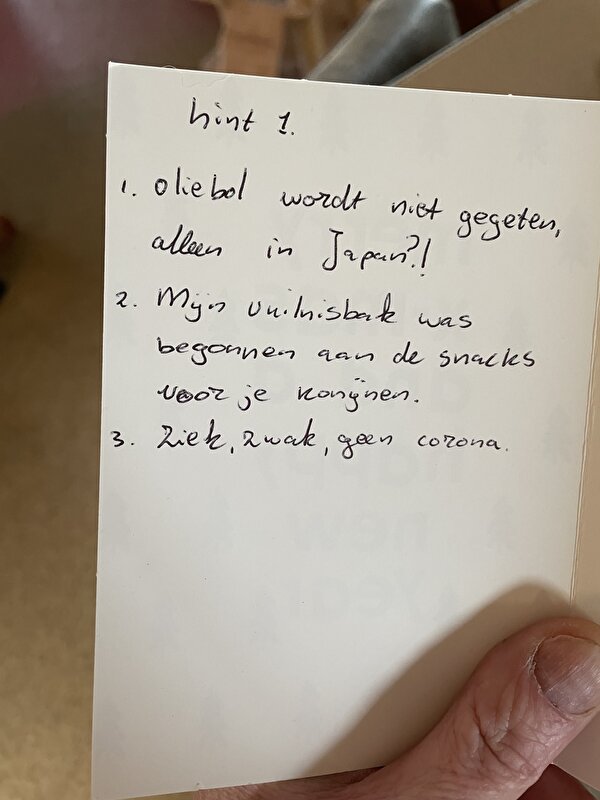 hint 1.
1. oliebol wordt niet gegeten,
alleen in Japan?!
2. Mijn vuilnisbak was
begonnen aan de snacks
voor je konijnen.
3. Ziek, zwak, geen corona.